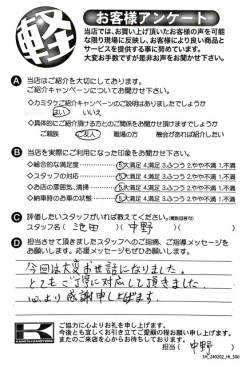 軽
お客様アンケート
当店では、お買い上げ頂いたお客様の声を可能
な限り現場に反映し、お客様により良い商品と
サービスを提供する事に努めています。
大変お手数ですが是非お声をお聞かせ下さい。
A 当店はご紹介を大切にしております。
ご紹介キャンペーンについてお聞かせ下さい。
◇カミタケご紹介キャンペーンのご説明はありましたでしょうか
はい いいえ
◇具体的にご紹介頂ける方とのご関係をお聞かせ頂けますでしょうか
ご親族 ご友人 職場の方 機会があれば紹介したい
B 当店を実際にご利用になった印象をお聞かせ下さい。
◇総合的な満足度 5.大満足 4.満足 3.ふつう 2.やや不満 1.不満
◇スタッフの対応 5.大満足 4.満足 3.ふつう 2.やや不満 1.不満
◇お店の雰囲気、清掃 5.大満足 4.満足 3.ふつう 2.やや不満 1.不満
◇納車時のお車の状態 5.大満足 4.満足 3.ふつう 2.やや不満 1.不満
C 評価したいスタッフがいれば教えてください。(複数回答可)
スタッフ名( 池田 )( 中野 )
D 担当させて頂きましたスタッフへのご指摘、ご指導メッセージを
お願いします。応援メッセージもぜひお願いします。
今回は大変お世話になりました。
とてもご丁寧に対応して頂きました。
心より感謝申し上げます。
ご協力に心よりお礼を申し上げます。
今後とも宜しくお引き立てご愛顧の程お願い申し上げます。
またのご来店を心からお待ちしております。
担当( 中野 )
SH_240202_HI_500